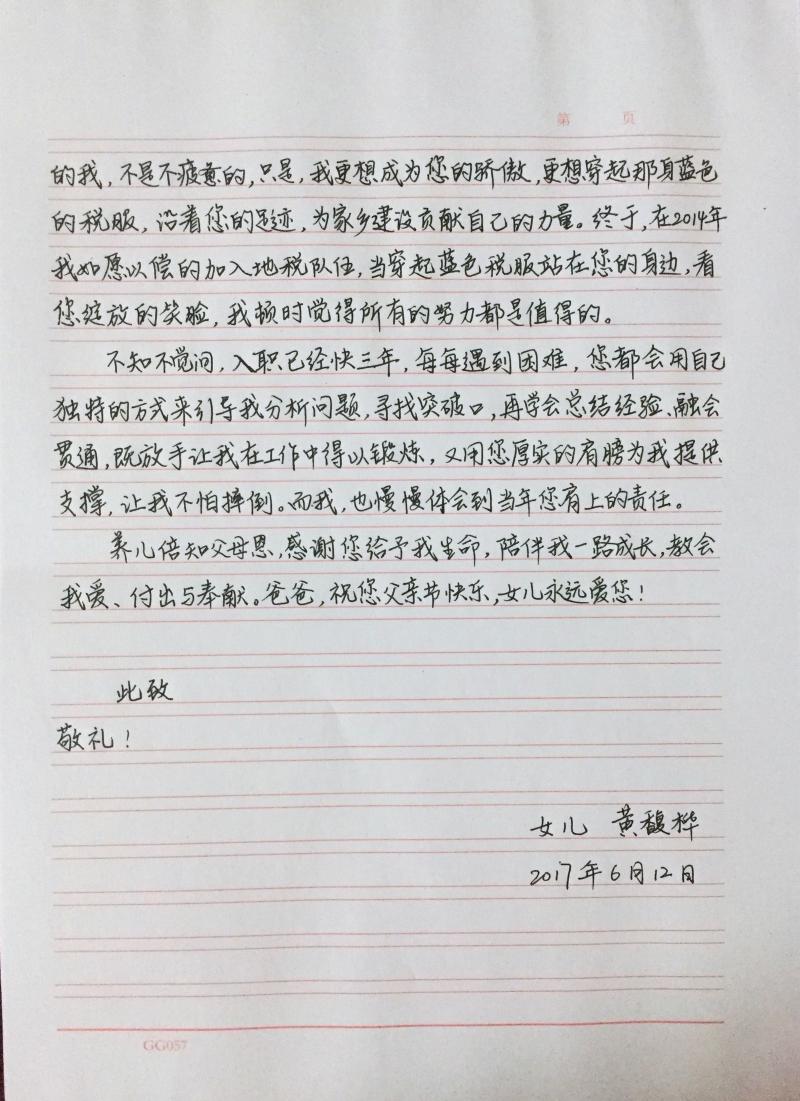 第 页
的我，不是不疲惫的，只是，我更想成为您的骄傲，更想穿起那身蓝色
的税服，沿着您的足迹，为家乡建设贡献自己的力量。终于，在2014年
我如愿以偿的加入地税队伍，当穿起蓝色税服站在您的身边，看
您绽放的笑脸，我顿时觉得所有的努力都是值得的。
不知不觉间，入职已经快三年，每每遇到困难，您都会用自己
独特的方式来引导我分析问题，寻找突破口，再学会总结经验、融会
贯通，既放手让我在工作中得以锻炼，又用您厚实的肩膀为我提供
支撑，让我不怕摔倒。而我，也慢慢体会到当年您肩上的责任。
养儿倍知父母恩，感谢您给予我生命，陪伴我一路成长，教会
我爱、付出与奉献。爸爸，祝您父亲节快乐，女儿永远爱您！
此致
敬礼！
女儿 黄馥桦
2017年6月12日
GG057